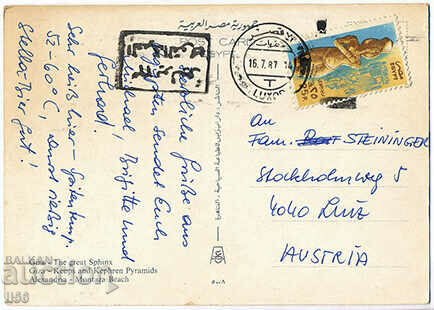 جمهورية مصر العربية
CARD
EGYPT
16.7.87 14
LUXOR
T
مصر
EGYPT
Herzliche Grüße aus
Ägypten sendet Euch
Michael, Brigitte und
Gertrud.
Sehr heiß hier – Spitzentemp.
52-60°C, sonst
Stella Bier gut!
An
Fam. STEININGER
Stockholmweg 5
4040 Linz
AUSTRIA
Giza - The great Sphinx
Giza - Keops and Kephren Pyramids
Alexandria - Montaza Beach
BALKAN
1156